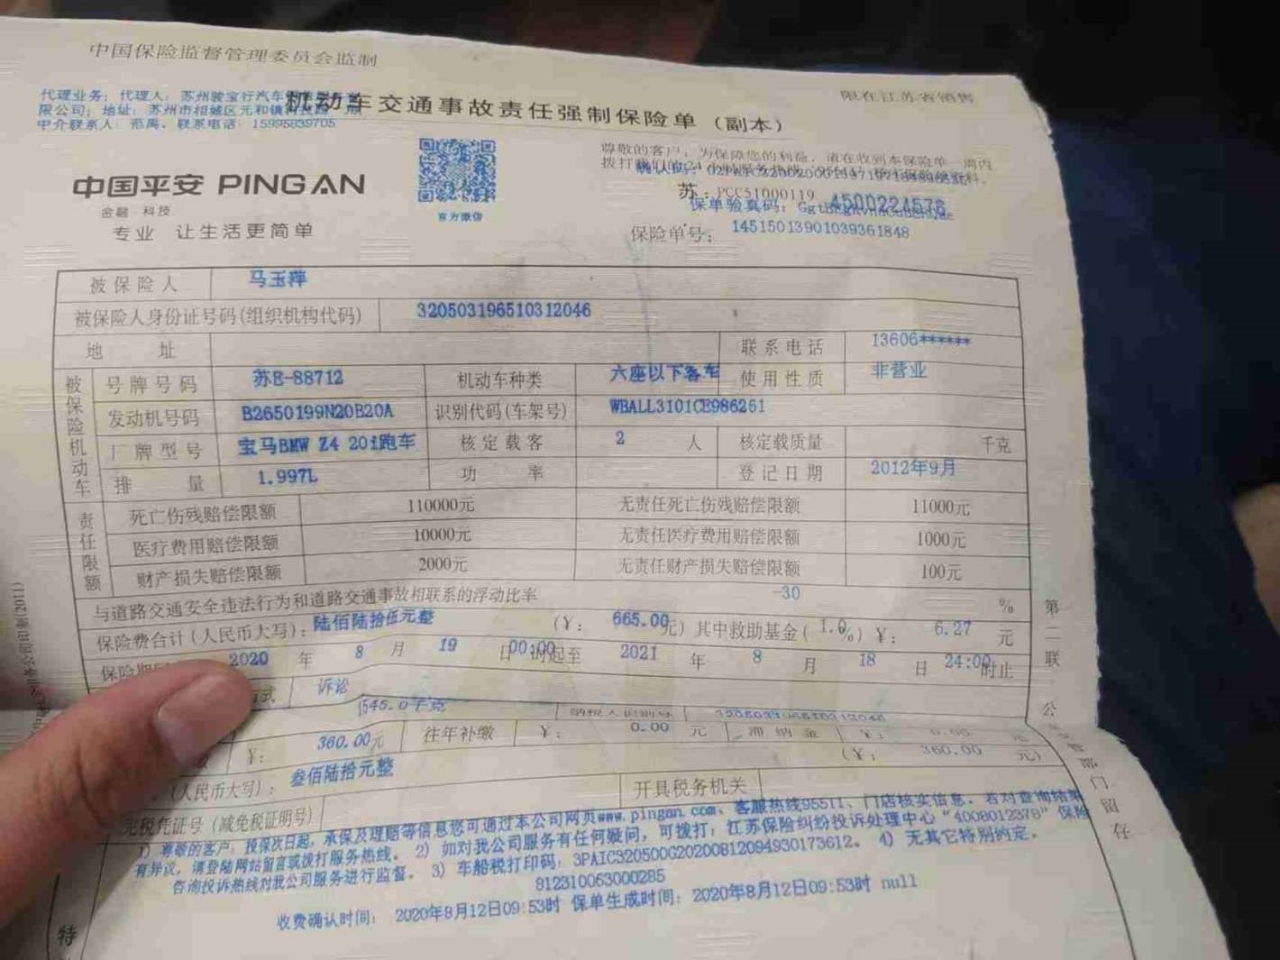 中国保险监督管理委员会监制
限在江苏省销售
代理业务: 代理人: 苏州骏宝行汽车
限公司; 地址: 苏州市相城区元和镇
中介联系人: 联系电话: 15995839705
机动车交通事故责任强制保险单 (副本)
尊敬的客户: 为保障您的利益, 请在收到本保险单一周内
中国平安 PING AN
金融 科技
专业 让生活更简单
官方微信
苏: PCC51000119 4500224576
保单验真码:
保险单号: 14515013901039361848
被保险人 马玉萍
被保险人身份证号码(组织机构代码) 320503196510312046
地 址 联系电话 13606******
被保险机动车
号牌号码 苏E-88712 机动车种类 六座以下客车 使用性质 非营业
发动机号码 B2650199N20B20A 识别代码(车架号) WBALL3101CE986261
厂牌型号 宝马BMW Z4 20i跑车 核定载客 2 人 核定载质量 千克
排 量 1.997L 功 率 登记日期 2012年9月
责任限额
死亡伤残赔偿限额 110000元 无责任死亡伤残赔偿限额 11000元
医疗费用赔偿限额 10000元 无责任医疗费用赔偿限额 1000元
财产损失赔偿限额 2000元 无责任财产损失赔偿限额 100元
与道路交通安全违法行为和道路交通事故相联系的浮动比率 -30 %
保险费合计(人民币大写): 陆佰陆拾伍元整 (¥: 665.00元) 其中救助基金(1.0%) ¥: 6.27 元
保险期 2020 年 8 月 19 日 00:00时起至 2021 年 8 月 18 日 24:00时止
式 诉讼
545.0千克 纳税人识别号 320503196510312046
¥: 360.00元 往年补缴 ¥: 0.00 元 滞纳金 ¥: 0.00 元
(人民币大写): 叁佰陆拾元整 (¥: 360.00 元)
完税凭证号 (减免税证明号) 开具税务机关
1) 尊敬的客户: 投保次日起, 承保及理赔等信息您可通过本公司网页www.pingan.com、客服热线95511、门店核实信息。若对查询结果
有异议, 请登陆网站留言或拨打服务热线。 2) 如对我公司服务有任何疑问, 可拨打: 江苏保险纠纷投诉处理中心“4008012378” 保险
咨询投诉热线对我公司服务进行监督。 3) 车船税打印码: 3PAIC320500G20200812094930173612。 4) 无其它特别约定。
812310063000285
收费确认时间: 2020年8月12日09:53时 保单生成时间: 2020年8月12日09:53时 null
特
第二联 公
部门留存